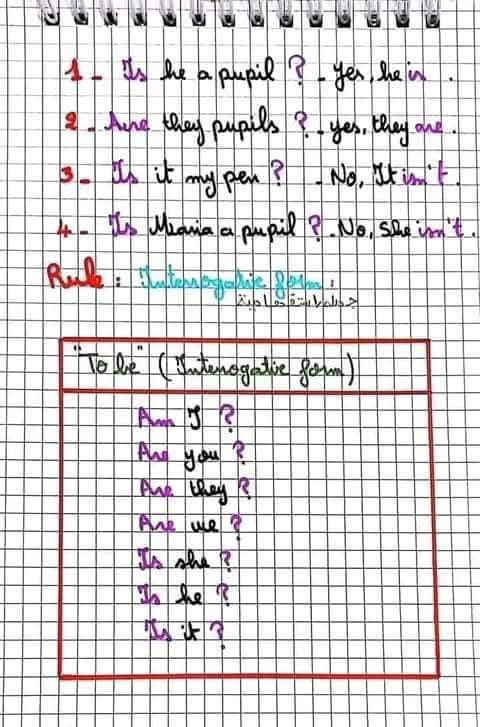 1- Is he a pupil ? - Yes, he is.
2- Are they pupils ? - yes, they are.
3- Is it my pen ? - No, It isn't.
4- Is Maria a pupil ? - No, She isn't.
Rule : Interrogative form :
"To be" (Interrogative form)
Am I ?
Are you ?
Are they ?
Are we ?
Is she ?
Is he ?
Is it ?